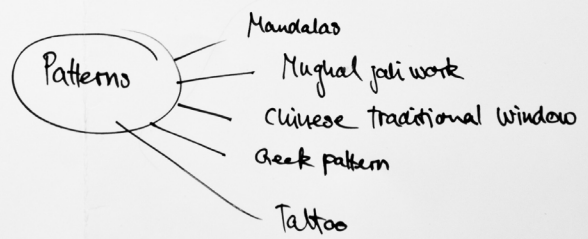 Patterns
Mandalas
Mughal jali work
Chinese traditional window
Greek pattern
Tattoo